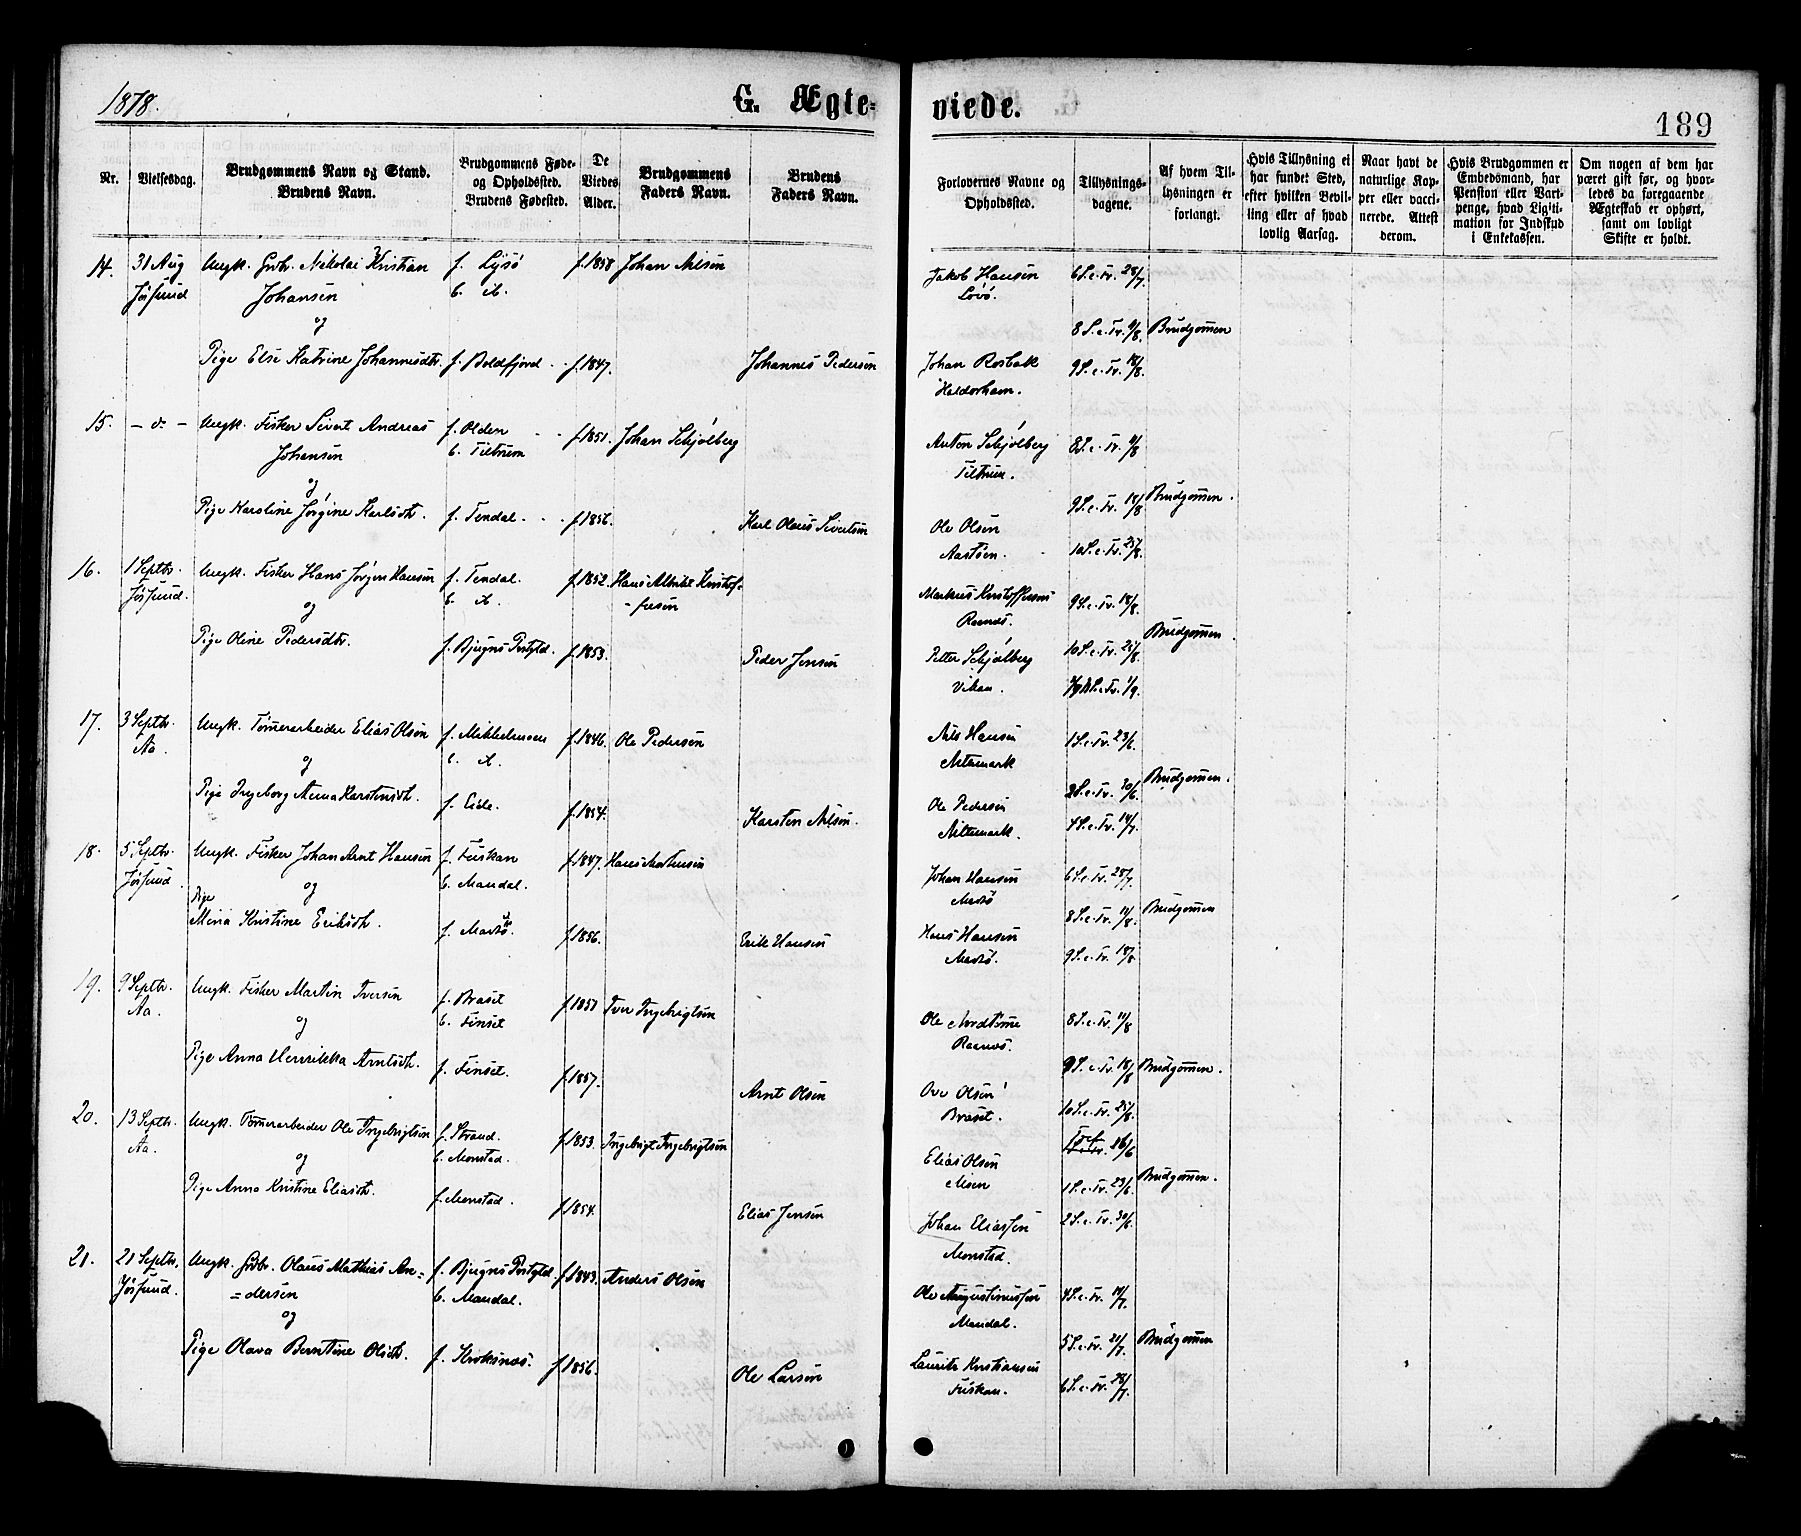 1878.
G. Ægte-
viede.
189
Nr.
Vielsesdag.
Brudgommens Navn og Stand.
Brudens Navn.
Brudgommens Føde-
og Opholdsted.
Brudens Fødested.
De
Viedes
Alder.
Brudgommens
Faders Navn.
Brudens
Faders Navn.
Forlovernes Navne og
Opholdsted.
Tillysnings-
dagene.
Af hvem Til-
lysningen er
forlangt.
Hvis Tillysning ei
har fundet Sted,
efter hvilken Bevil-
ling eller af hvad
lovlig Aarsag.
Naar havt de
naturlige Kop-
per eller vacci-
nerede. Attest
derom.
Hvis Brudgommen er
Embedsmand, har
Pension eller Vart-
penge, hvad Ligiti-
mation for Indskud
i Enkekassen.
Om nogen af dem har
været gift før, og hvor-
ledes da foregaaende
Ægteskab er ophørt,
samt om lovligt
Skifte er holdt.
14. 31 Aug Ungk. Nikolai Kristian f. Lysø f. 1858 Johan Nilsen Jakob Hansen 6 S. e. Tr. 28/7
Jøssund Johansen b. Lovø.
og 8 S. e. Tr. Brudgommen
Pige Else Katrine Johannesdtr. f. Boldfjord f. 1847. Johannes Pedersen Johan Rosbak 9 S. e. Tr. 18/8.
Haldorhavn.
15. - d. - Ungk. Fisker Sivert Andreas f. Olden f. 1851. Johan Schjølberg Anton Schjølberg 8 S. e. Tr.
Johansen b. Tiltrem Tiltrem.
og 9 S. e. Tr. 18/8 Brudgommen.
Pige Karoline Jørgine Karlsdtr. f. Tendal. f. 1856. Karl Olaus Sivertsen Ole Olsen
10 S. e. Tr. 25/8.
16. 1 Septbr. Ungk. Fisker Hans Jørgen Hansen f. Tendal. f. 1852. Hans Kristof-
Jøssund. og b. -fersen Markus Kristoffersen 9 S. e. Tr. 18/8
Brudgommen.
Pige Oline Pedersdtr. f. Bjugns Prstgld. f. 1853. Peder Jensen Petter Schjølberg 10 S. e. Tr. 25/8
Vikan. S. e. Tr. 1/9.
17. 3 Septbr. Ungk. Tømerarbeider Elias Olsen f. f. 1846. Ole Pedersen Nils Hansen 1 S. e. Tr. 23/6.
Aa. og
Brudgommen.
Pige Ingeborg Anna Karstensdtr. f. Eide. f. 1854. Karsten Nilsen. Ole Pedersen 2 S. e. Tr. 30/6.
4 S. e. Tr. 14/7.
18. 5 Septbr. Ungk. Fisker Johan Arnt Hansen f. Fuskan f. 1847. Hans Mortensen Johan Hansen 6 S. e. Tr. 28/7.
Jøssund og b. Mandal.
Pige 8 S. e. Tr. 11/8. Brudgommen
Kristine Eriksdtr. f. f. 1856. Erik Hansen Hans Hansen
9 S. e. Tr. 18/8
19. 9 Septbr. Ungk. Fisker Martin Iversen f. Braset f. 1851 Iver Ingebrigtsen
Aa. og b. Finset Ole 8 S. e. Tr. 11/8
Pige Anna Henrikka Arntsdtr. f. Finset. f. 1857. Arnt Olsen 9 S. e. Tr. 18/8 Brudgommen.
Ove Olsen
Braset. 10 S. e. Tr. 25/8.
20. 13 Septbr. Ungk. Tømerarbeider Ole Ingebrigtsen f. Strand. f. 1853. Ingebrigt Ingebrigtsen 16/6
Aa. og b. Monstad. Elias Olsen
Pige Anna Kristine Eliasdtr. f. Monstad. f. 1854. Elias Jensen 1 S. e. Tr. 23/6. Brudgommen.
Johan Eliassen 2 S. e. Tr. 30/6.
Monstad.
21. 21 Septbr. Ungk. Olaus Mathias An= f. Bjugns Prstgld. f. 1843. Anders Olsen
Jøssund. =dersen b. Mandal. Ole Augustinussen 4 S. e. Tr. 14/7.
og Mandal.
5 S. e. Tr. 21/7. Brudgommen
Pige Olava Berntine Olsdtr. f. Kroksnæs. f. 1856. Ole Larsen Lauritz Kristiansen
Fuskan. 6 S. e. Tr. 28/7.